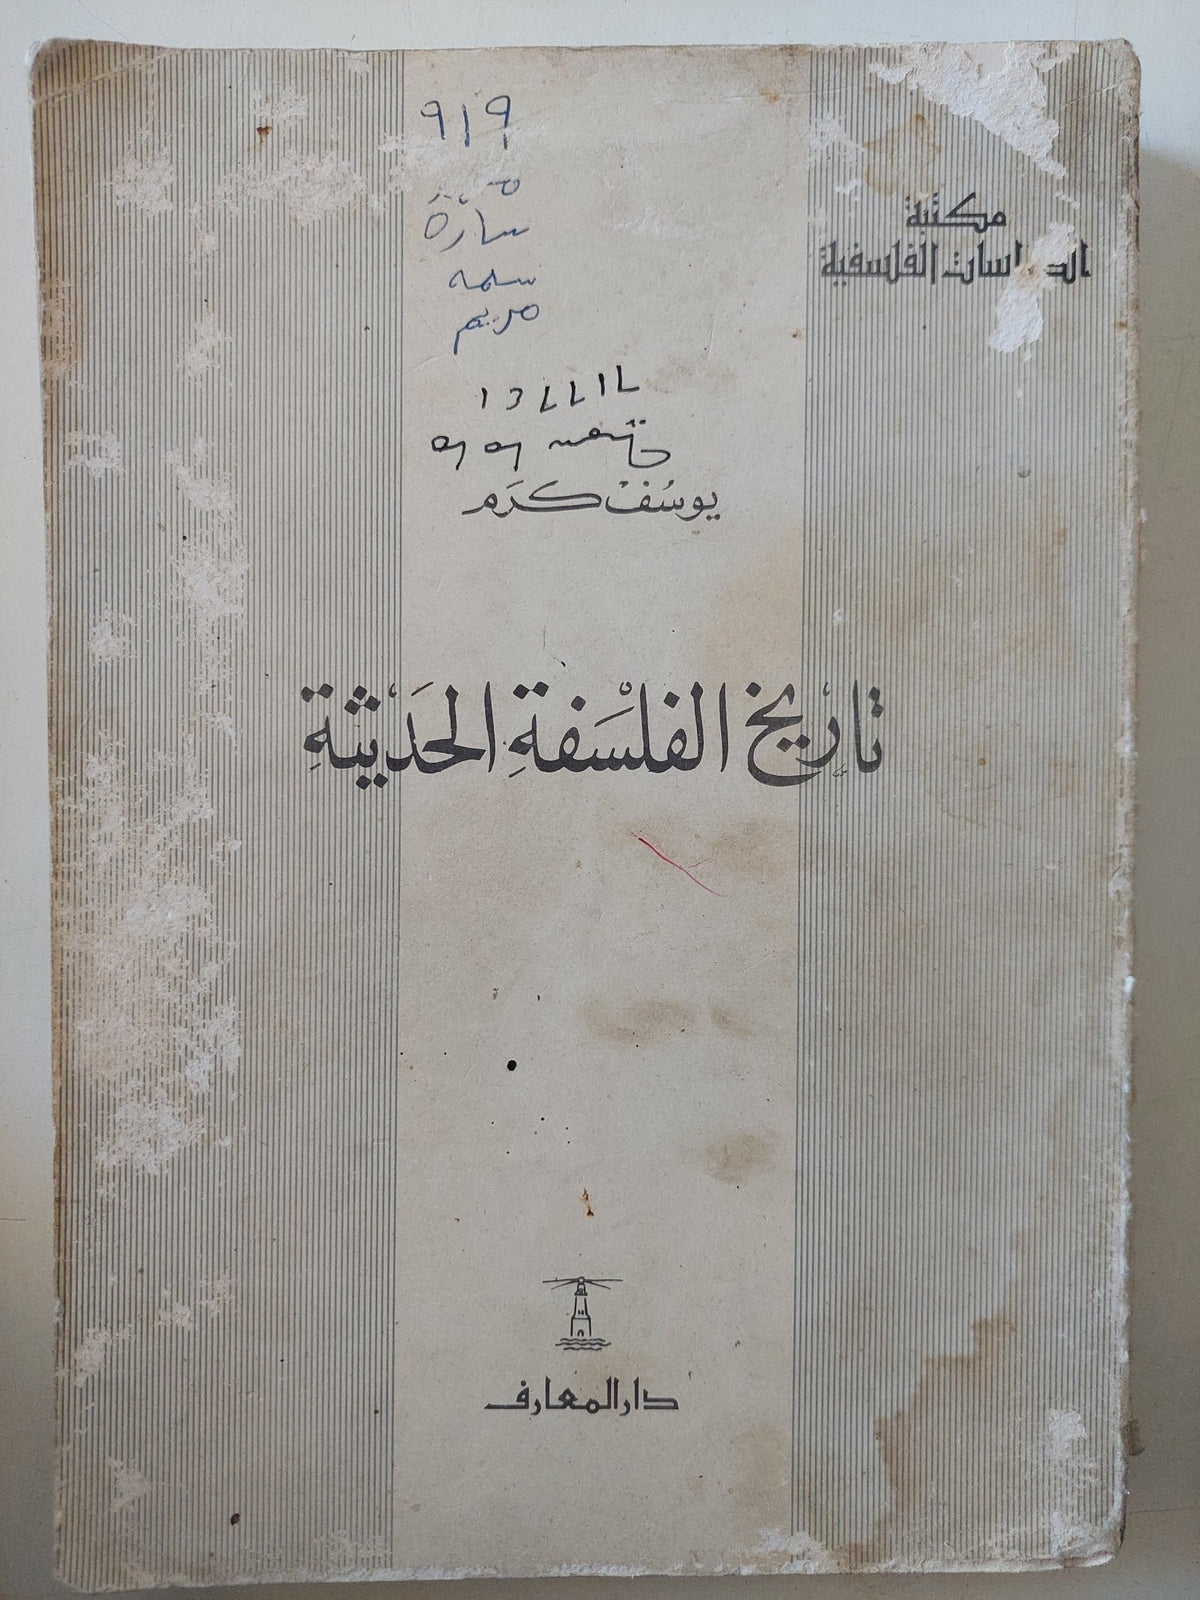 مكتبة
الدراسات الفلسفية
٩١٩
سارة
سلمه
مريم
يوسُف كَرَم
تاريخ الفلسَفةِ الحَديثةِ
دار المعارف